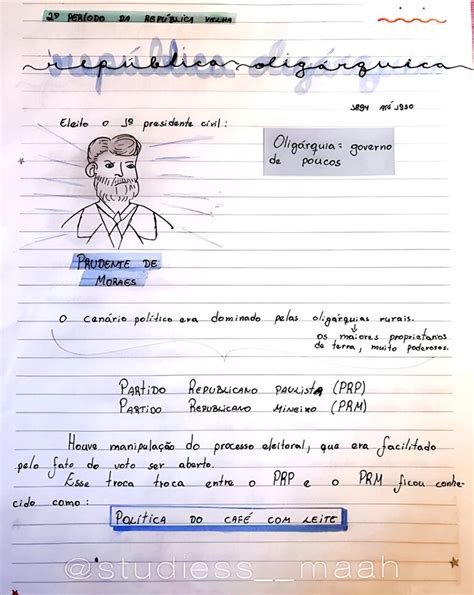 2º PERÍODO DA REPÚBLICA VELHA
república oligárquica
1894 ATÉ 1930
Eleito o 1º presidente civil:
Oligárquia = governo
de poucos
PRUDENTE DE
MORAES
O cenário político era dominado pelas oligárquias rurais.
os maiores proprietários
de terra, muito poderosos.
PARTIDO REPUBLICANO PAULISTA (PRP)
PARTIDO REPUBLICANO MINEIRO (PRM)
Houve manipulação do processo eleitoral, que era facilitado
pelo fato do voto ser aberto.
Esse troca troca entre o PRP e o PRM ficou conhe-
cido como:
POLÍTICA DO CAFÉ COM LEITE
@studiess__maah